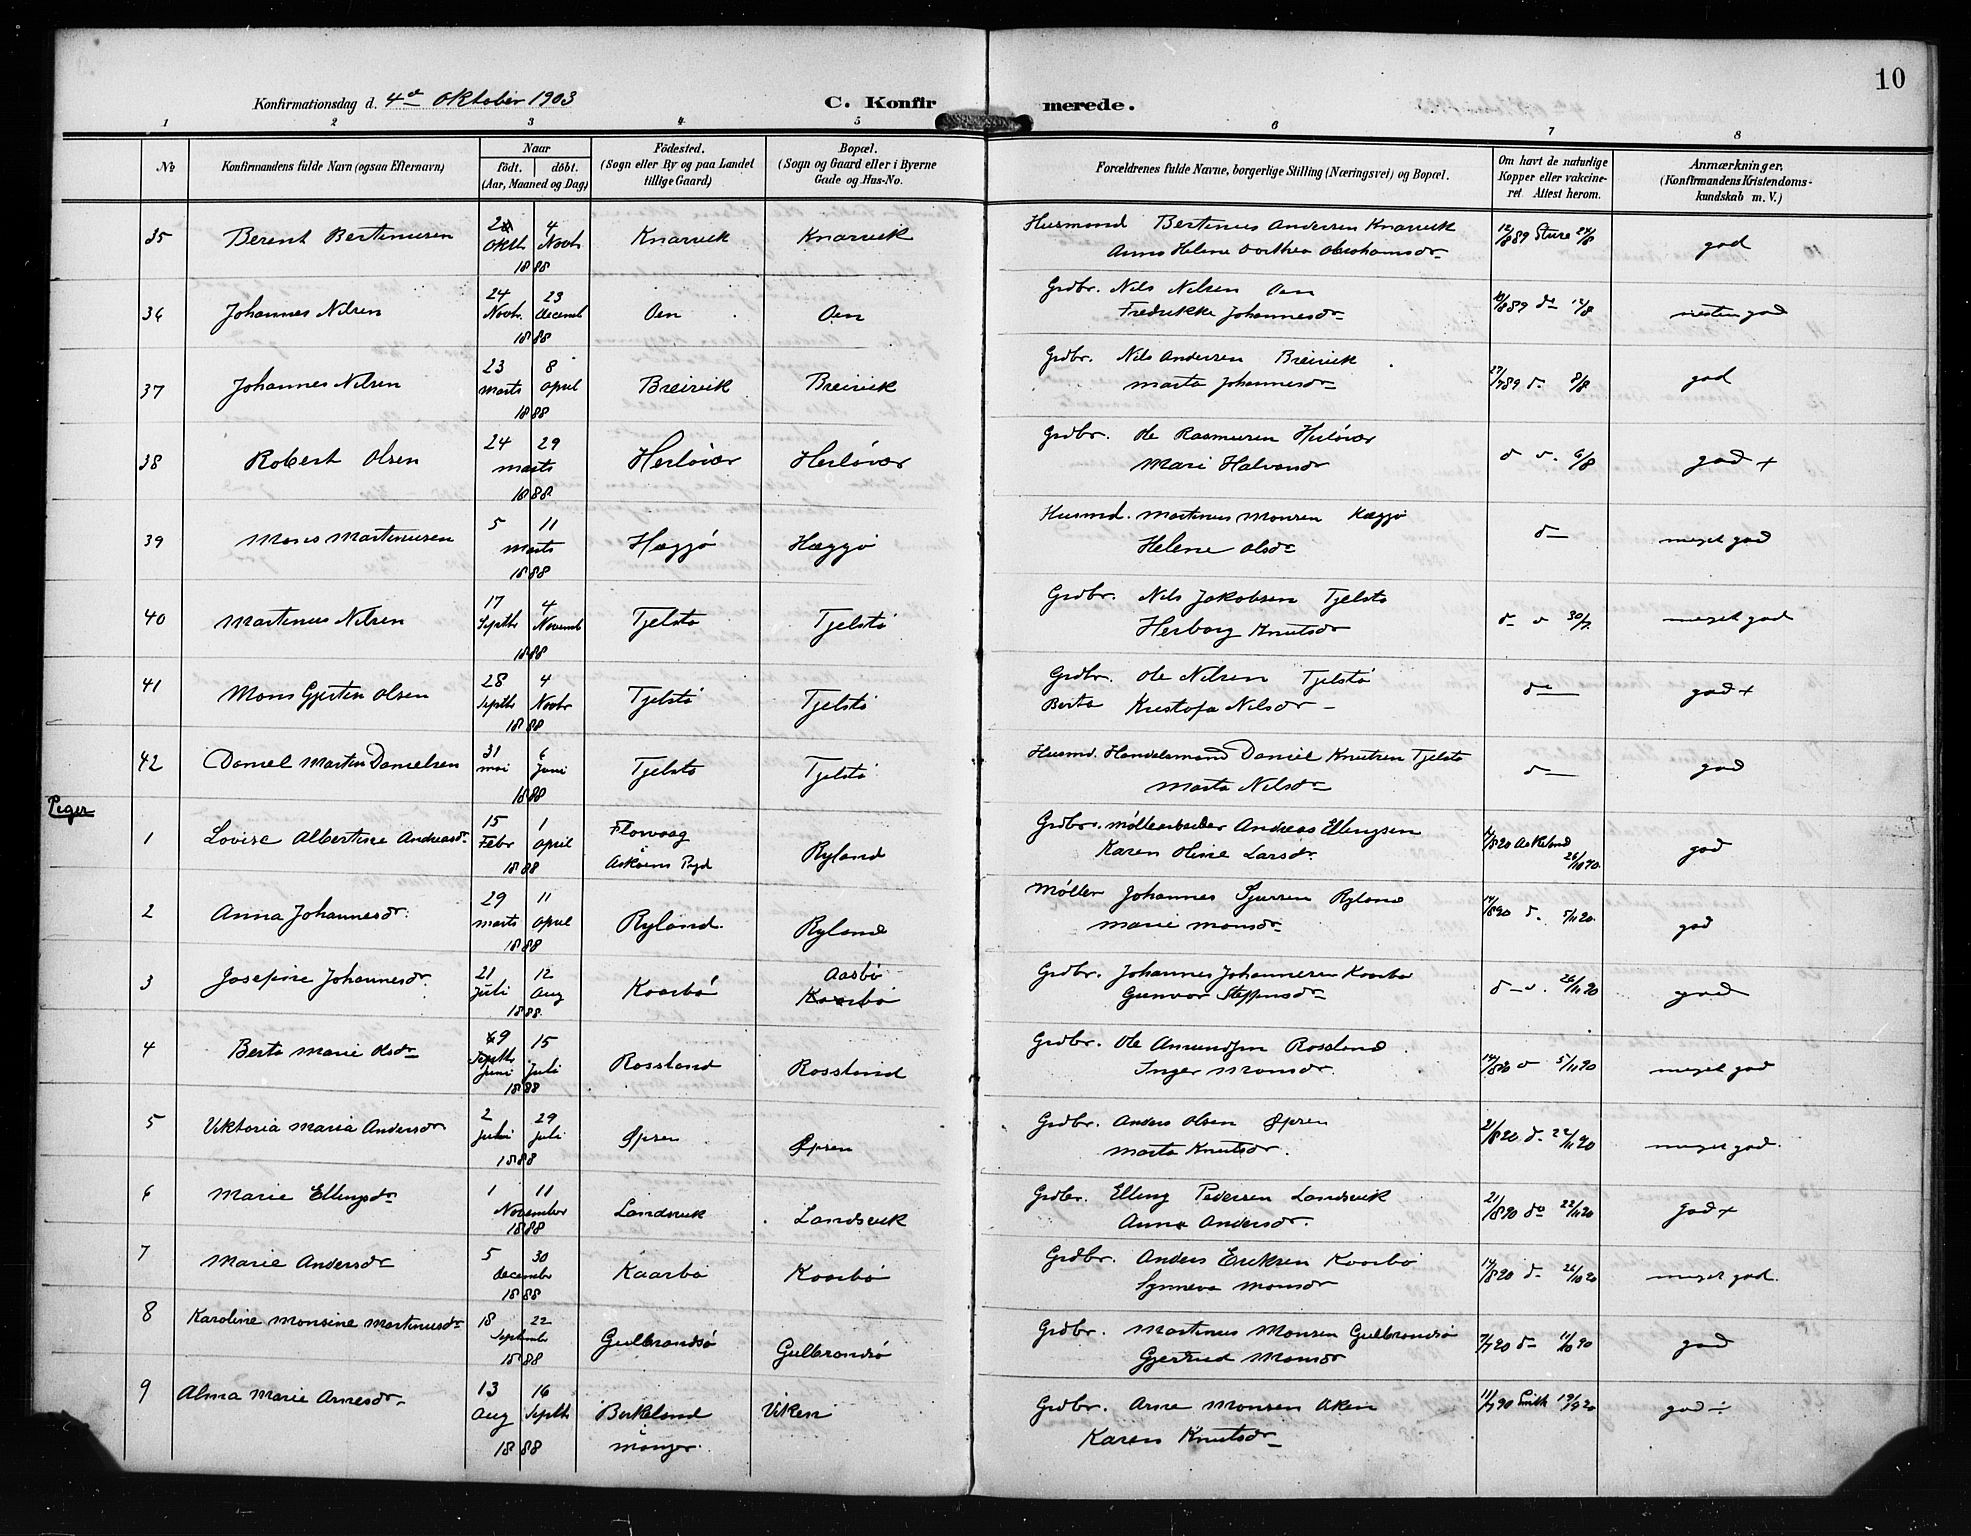 10
Konfirmationsdag d. 4de Oktober 1903
C. Konfirmerede.
1 2 3 4 5 6 7 8
No
Konfirmandens fulde Navn (ogsaa Efternavn)
Naar
født. døbt.
(Aar, Maaned og Dag)
Fødested.
(Sogn eller By og paa Landet
tillige Gaard)
Bopæl.
(Sogn og Gaard eller i Byerne
Gade og Hus-No.
Forældrenes fulde Navne, borgerlige Stilling (Næringsvei) og Bopæl.
Om havt de naturlige
Kopper eller vakcine-
ret. Attest herom.
Anmærkninger,
(Konfirmandens Kristendoms-
kundskab m. V.)
35 Berent Bertinusen Oktb 4 Novbr 1888 Knarvik Knarvik
Husmand Bertinus Andersen Knarvik
Anne Helene Dorthea Abrahamsdr
12/8 89 Sture 24/8 god
36 Johannes Nilsen 24 Novbr. 23 decemb 1888 Oen Oen
Grdbr. Nils Nilsen Oen
Fredrikke Johannesdr
89 do 12/8 nesten god
37 Johannes Nilsen 23 marts 8 april 1888 Breivik Breivik
Grdbr. Nils Andersen Breivik
Marta Johannesdr
27/7 89 d. 8/8 god
38 Robert Olsen 24 29 marts 1888 Herløvær Herløvær
Grdbr. Ole Rasmusen Herløvær
Mari Halvorsdr
6/8 god +
39 Mons Martinusen 5 11 marts 1888 Hæggø Hæggø
Husmd. Martinus Monsen Hæggø
Helene Olsdr
d— meget god
40 Martinus Nilsen 17 Septbr 4 Novemb 1888 Tjelstø Tjelstø
Grdbr. Nils Jakobsen Tjelstø
Herborg Knutsdr
30/7. meget god
41 Mons Gjertin Olsen 28 Septbr 4 Novbr 1888 Tjelstø Tjelstø
Grdbr. Ole Nilsen Tjelstø
Berta Kristofa Nilsdr
do— god +
42 Daniel Martin Danielsen 31 mai 6 Juni 1888 Tjelstø Tjelstø
Husmd. Handelsmand Daniel Knutsen Tjelstø
Marta Nilsdr
d— god
Piger
1 Lovise Albertine Andreasdr 15 Febr 1 april 1888 Florvaag
Askøens Pgd Ryland
Grdbr. Møllearbeider Andreas Ellingsen
Karen Oline Larsdr.
Askeland 26/10 90 god
2 Anna Johannesdr. 29 marts 11 april 1888 Ryland. Ryland
Møller Johannes Sjursen Ryland
Marie Monsdr
14/8 90 d. 5/11 90. god
3 Josefine Johannesdr. 21 Juli 12 Aug 1888. Kaarbø Aasbø
Kaarbø
Grdbr. Johannes Johannesen Kaarbø
Gunvor Steffensdr
26/11 90 god
4 Berta Marie Olsdr 9 Septbr Juni 15 Juli 1888 Rossland Rossland
Grdbr. Ole Amundsen Rossland
Inger Monsdr.
14/8 90 5/11 90 meget god
5 Viktoria Maria Andersdr 2 Juli 29 Juli 1888 Øpsen Øpsen
Grdbr. Anders Olsen Øpsen
Marta Knutsdr.
21/8 90 d. 22/11 90 meget god.
6 Marie Ellingsdr 1 11 November 1888 Landsvik Landsvik
Grdbr. Elling Pedersen Landsvik
Anna Andersdr.
21/8 90 do 22/11 90 god +
7 Marie Andersdr 5 30 december 1888 Kaarbø Kaarbø
Grdbr. Anders Eriksen Kaarbø
Synneva Monsdr
14/8 90 d. 26/10 90 meget god.
8 Karoline Monsine Martinusdr 18 22 September 1888 Gulbrandsø Gulbrandsø
Grdbr. Martinus Monsen Gulbrandsø
Gjertrud Monsdr
7/7 90 d— 11/10 90 god
9 Alma Marie Arnesdr. 13 Aug 16 Septbr 1888 Birkeland
Manger. Viken
Grdbr. Arne Monsen
Karen Knutsdr
11/7 90 Smith 19/9 90 god ÷